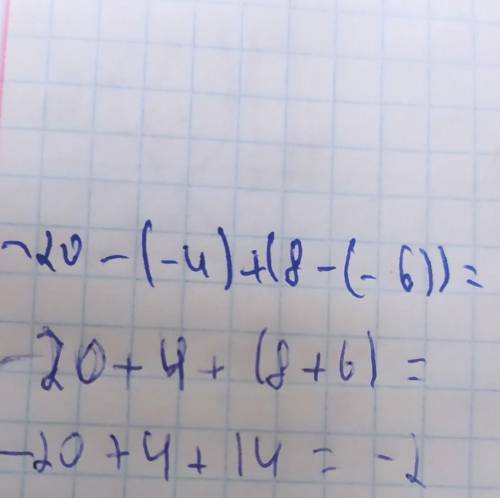 -20 - (-4) + (8 - (- 6)) =
-20 + 4 + (8 + 6) =
-20 + 4 + 14 = -2